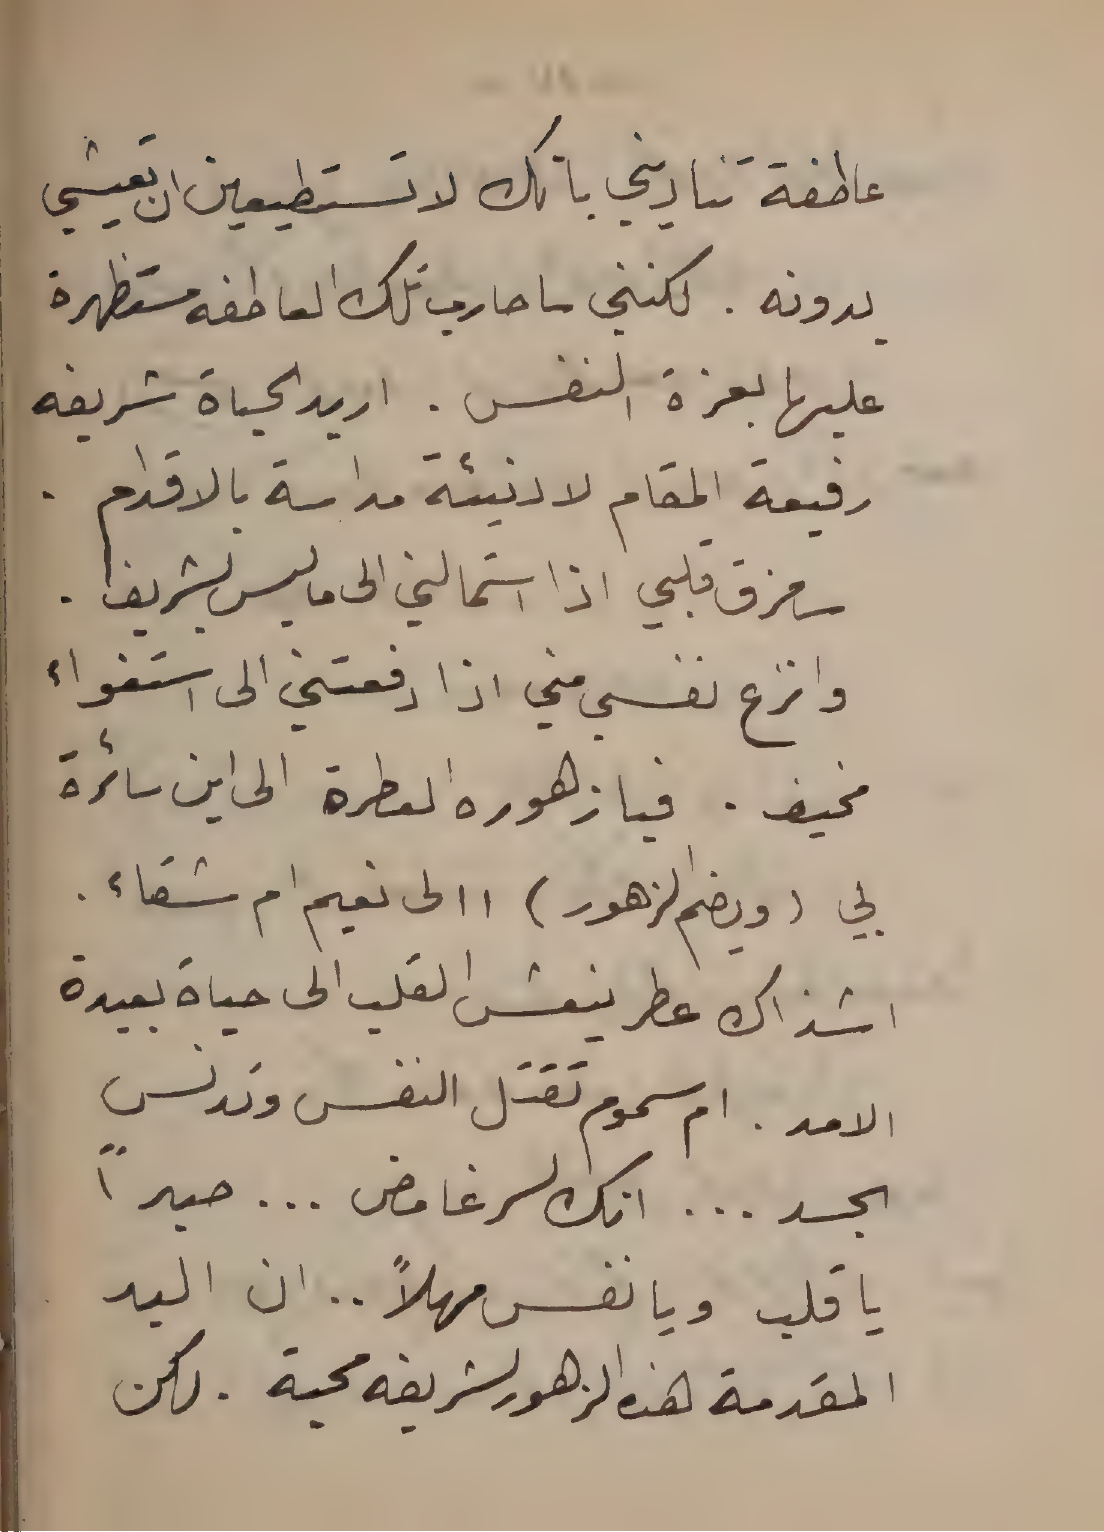 عاطفة تناديني بانك لا تستطيعين ان تعيشي
بدونه . لكنني ساحارب تلك العاطفه مستظهرة
عليها بعزة النفس . اريد الحياة شريفه
رفيعة المقام لا دنيئة مداسة بالاقدام .
سامزق قلبي اذا استمالني الى ما ليس بشريف .
وانزع نفسي مني اذا دفعتني الى استغواء
مخيف . فيا زهوره العطرة الى اين سائرة
بي ( ويضم الزهور ) االى نعيم ام شقاء .
اشذاك عطر ينعش القلب الى حياة بعيدة
الامد . ام سموم تقتل النفس وتدنس
الجسد ... انك لسر غامض ... صبراً
يا قلب ويا نفس مهلاً .. ان اليد
المقدمة هذه الزهور لشريفه محبة . لكن